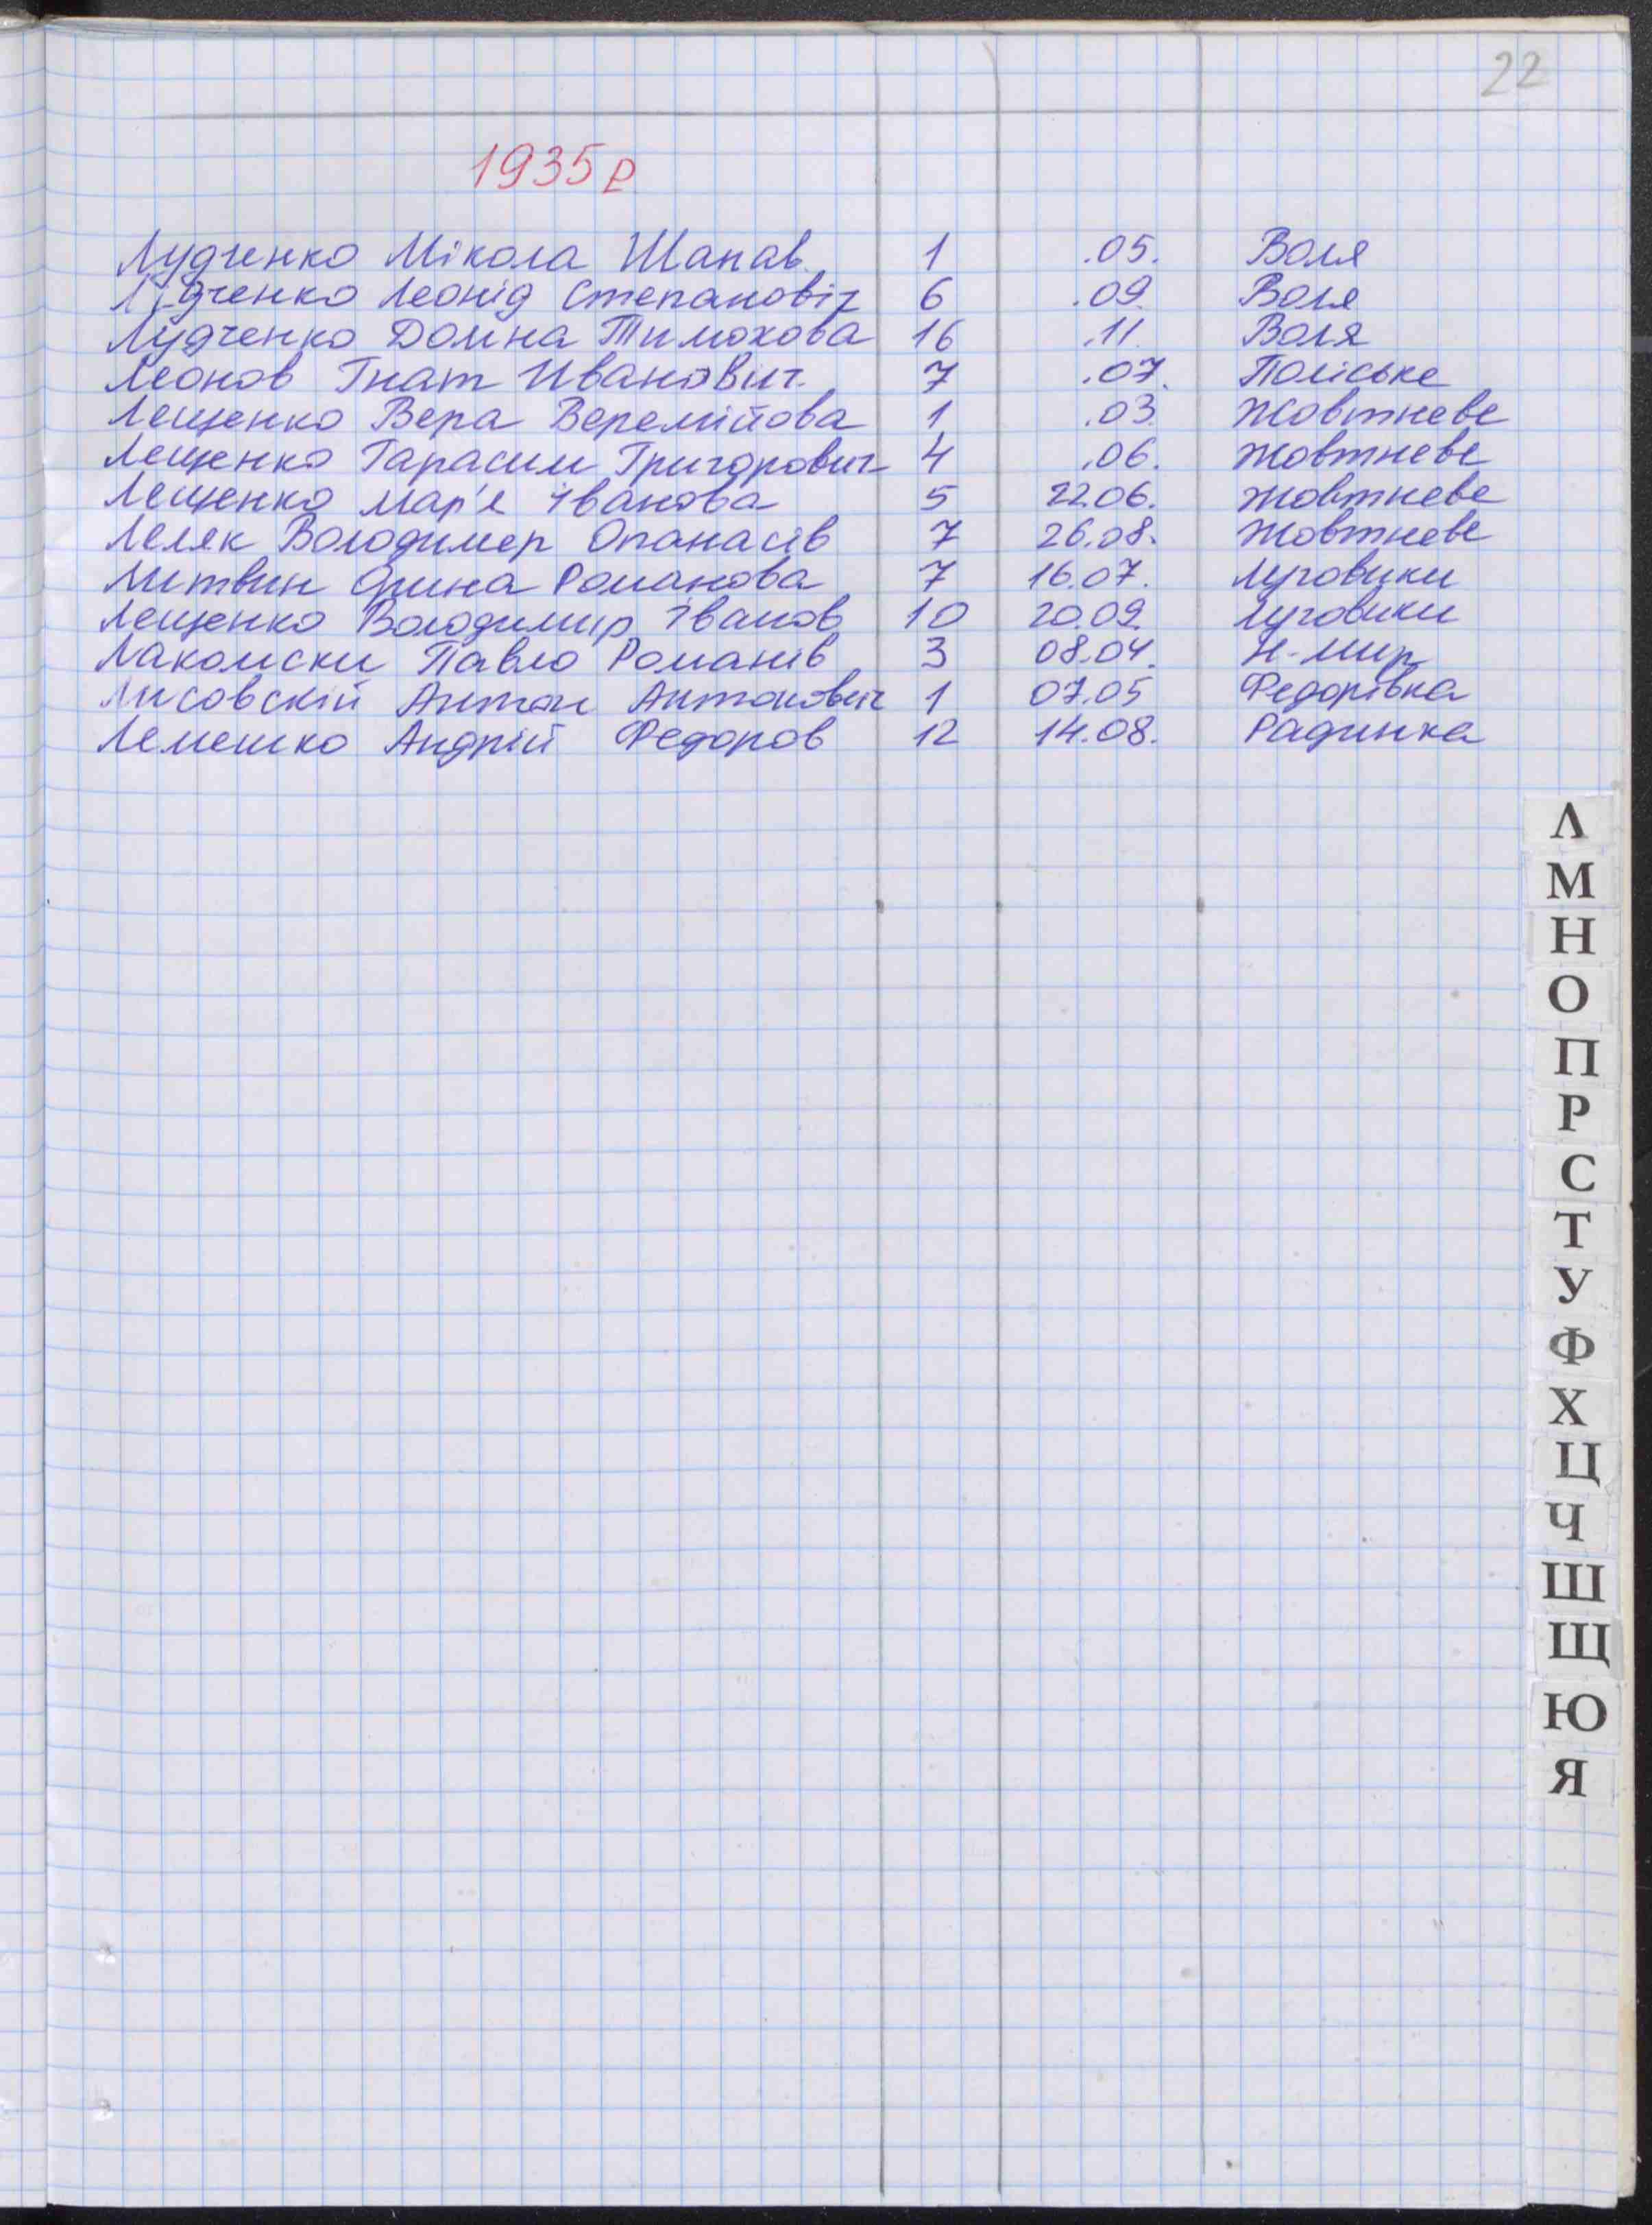 22
1935р
Лудченко Мікола Шапав. 1 .05. Воля
Лудченко Леонід Степановіч 6 .09. Воля
Лудченко Домна Тимохова 16 .11. Воля
Леонов Гнат Иванович. 7 .07. Поліське
Лещенко Вера Веремійова 1 .03. Жовтневе
Лещенко Гарасим Григорович 4 .06. Жовтневе
Лещенко Мар'я Іванова 5 22.06. Жовтневе
Леляк Володимер Опанасів 7 26.08. Жовтневе
Литвин Орина Романова 7 16.07. Луговики
Лещенко Володимир Іванов 10 20.09. Луговики
Лакомски Павло Романів 3 08.04. Н-Мир
Лисовскій Антон Антонович 1 07.05 Федорівка
Лемешко Андрій Федоров 12 14.08. Радинка
Л
М
Н
О
П
Р
С
Т
У
Ф
Х
Ц
Ч
Ш
Щ
Ю
Я